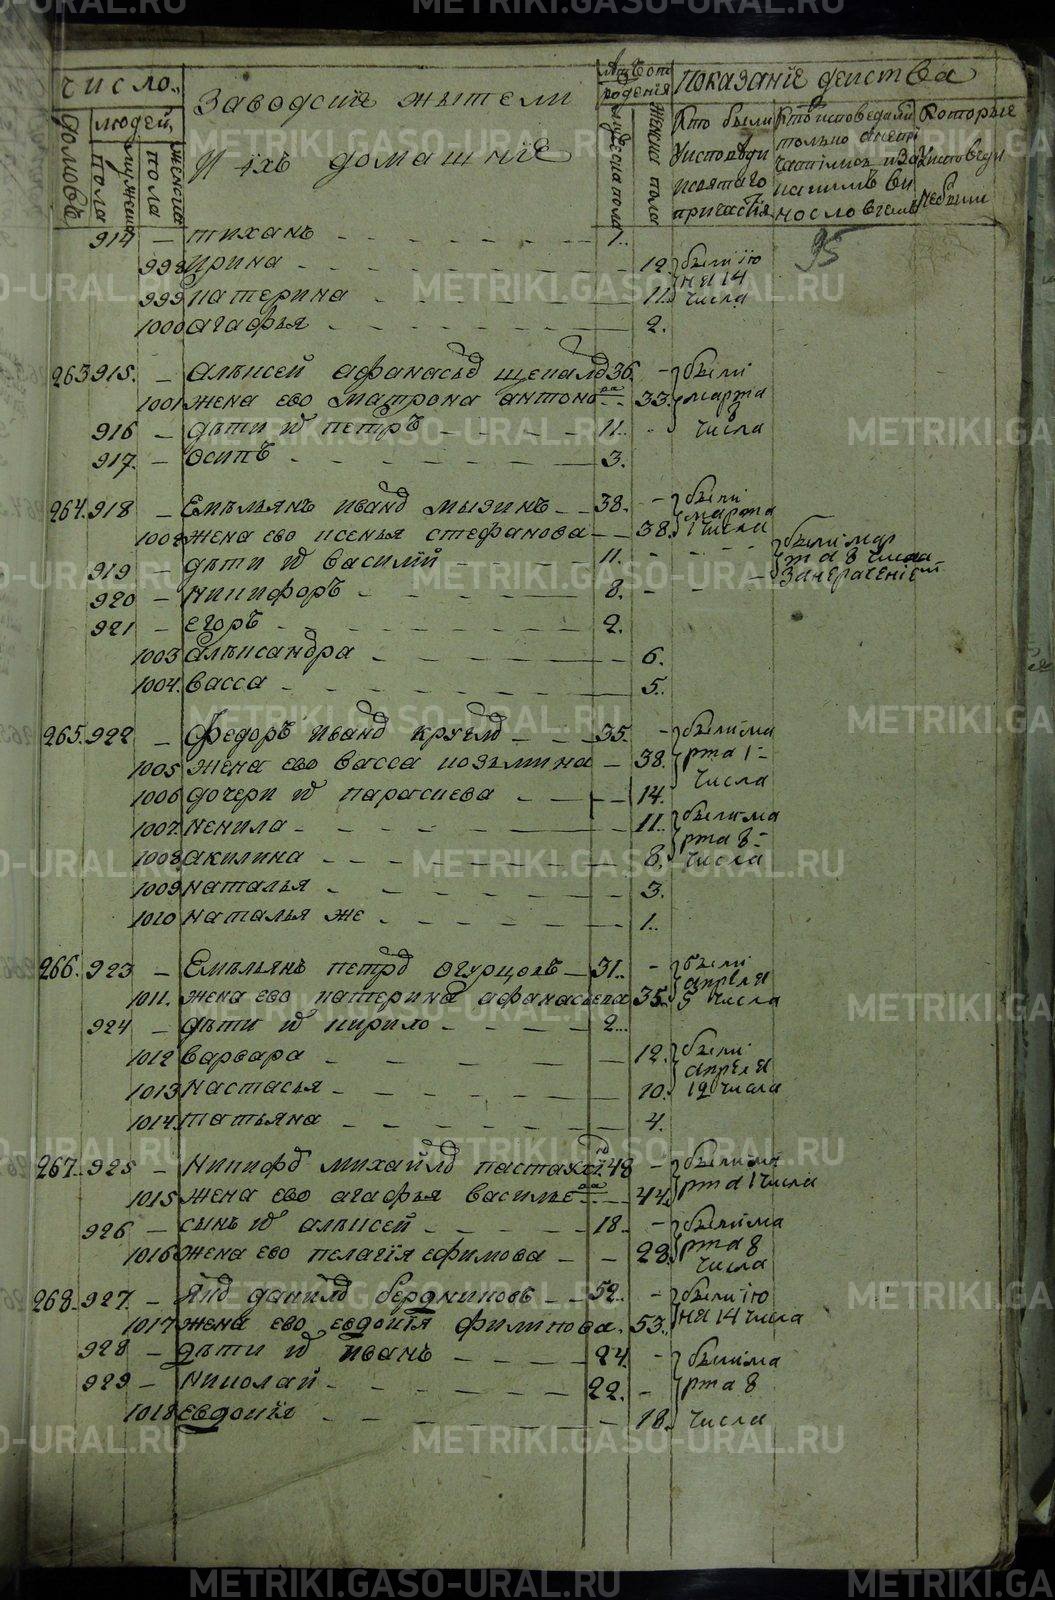 число
домовъ
людей
мужеска пола
женска пола
Заводскiе жытели
и iхъ домашнiе
лѣта от рожденiя
мужеска пола
женска пола
показанiе деиства
кто были у исповеди и святаго причастiя
кто исповедали только а непричатiлись и за каким ви нословием
которые у исповеди небыли
95
914 — тиханъ — 1.
998 ирина — 12. были iюня 14 числа
999 катерина — 11.
1000 агафья — 2.
263 915. — алѣксей афанасьд щекалд 36. — были марта 8 числа
1001 жена ево матрона антоноваа — 33.
916 — дѣти iд петръ — 11.
917. — осипъ — 3.
264. 918 — Емѣльянъ иванд мызинъ — 38. — были марта 1 числа
1002 жена ево ксенья стефанова — 38.
919 — дѣти iд василiй — 11. — были марта 8 числа
920 — никифоръ — 8. —
921 — егоръ — 2.
1003 алѣксандра — 6.
1004. васса — 5.
265. 922 — Федоръ иванд круглд — 35. — были марта 1 числа
1005 жена ево васса козьмина — 38.
1006 дочери iд парасковa — 14.
1007 ненила — 11. были марта 8 числа
1008 акилина — 8.
1009 наталья — 3.
1010 наталья же — 1.
266. 923 — Емѣльянъ петрд огурцовъ — 31. — были апреля 5 числа
1011. жена ево катерина афанасьева 35.
924 — дѣти iд кирило — 2.
1012 варвара — 12. были апреля 12 числа
1013 настасья — 10.
1014. татьяна — 4.
267. 925 — Никифд михайлд 48 — были марта 1 числа
1015 жена ево агафья василье — 44.
926 — сынъ iд алѣксей — 18. — были марта 8 числа
1016 жена ево пелагiя ефимова — 28.
268. 927. — Якд данилд бердниковъ — 52. — были iюня 14 числа
1017 жена ево евдокiя филипова. 53.
928 — дѣти iд иванъ — 24. — были марта 8 числа
929 — николай — 22. —
1018 евдокiя — 18.
METRIKI.GASO-URAL.RU